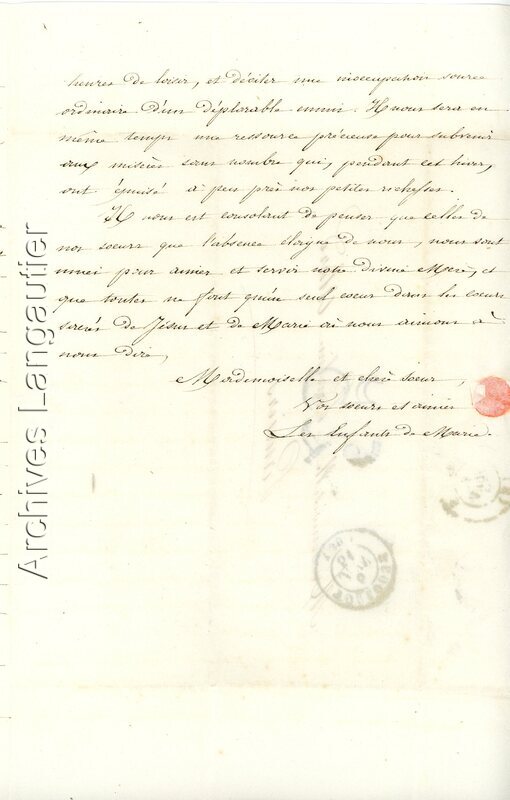 heures de loisir, et déciter une inoccupation source
ordinaire d'un déplorable ennui. Il nous sera en
même temps une ressource précieuse pour subvenir
aux misères sans nombre qui, pendant cet hiver,
ont épuisé à peu près nos petites richesses.
Il nous est consolant de penser que celles de
nos soeurs que l'absence éloigne de nous, nous sont
unies pour aimer et servir notre divine Mère, et
que toutes ne font qu'un seul coeur dans les coeurs
sacrés de Jésus et de Marie où nous aimons à
nous dire,
Mademoiselle et chère soeur,
Vos soeurs et amies
Les Enfants de Marie.
Archives Langautier